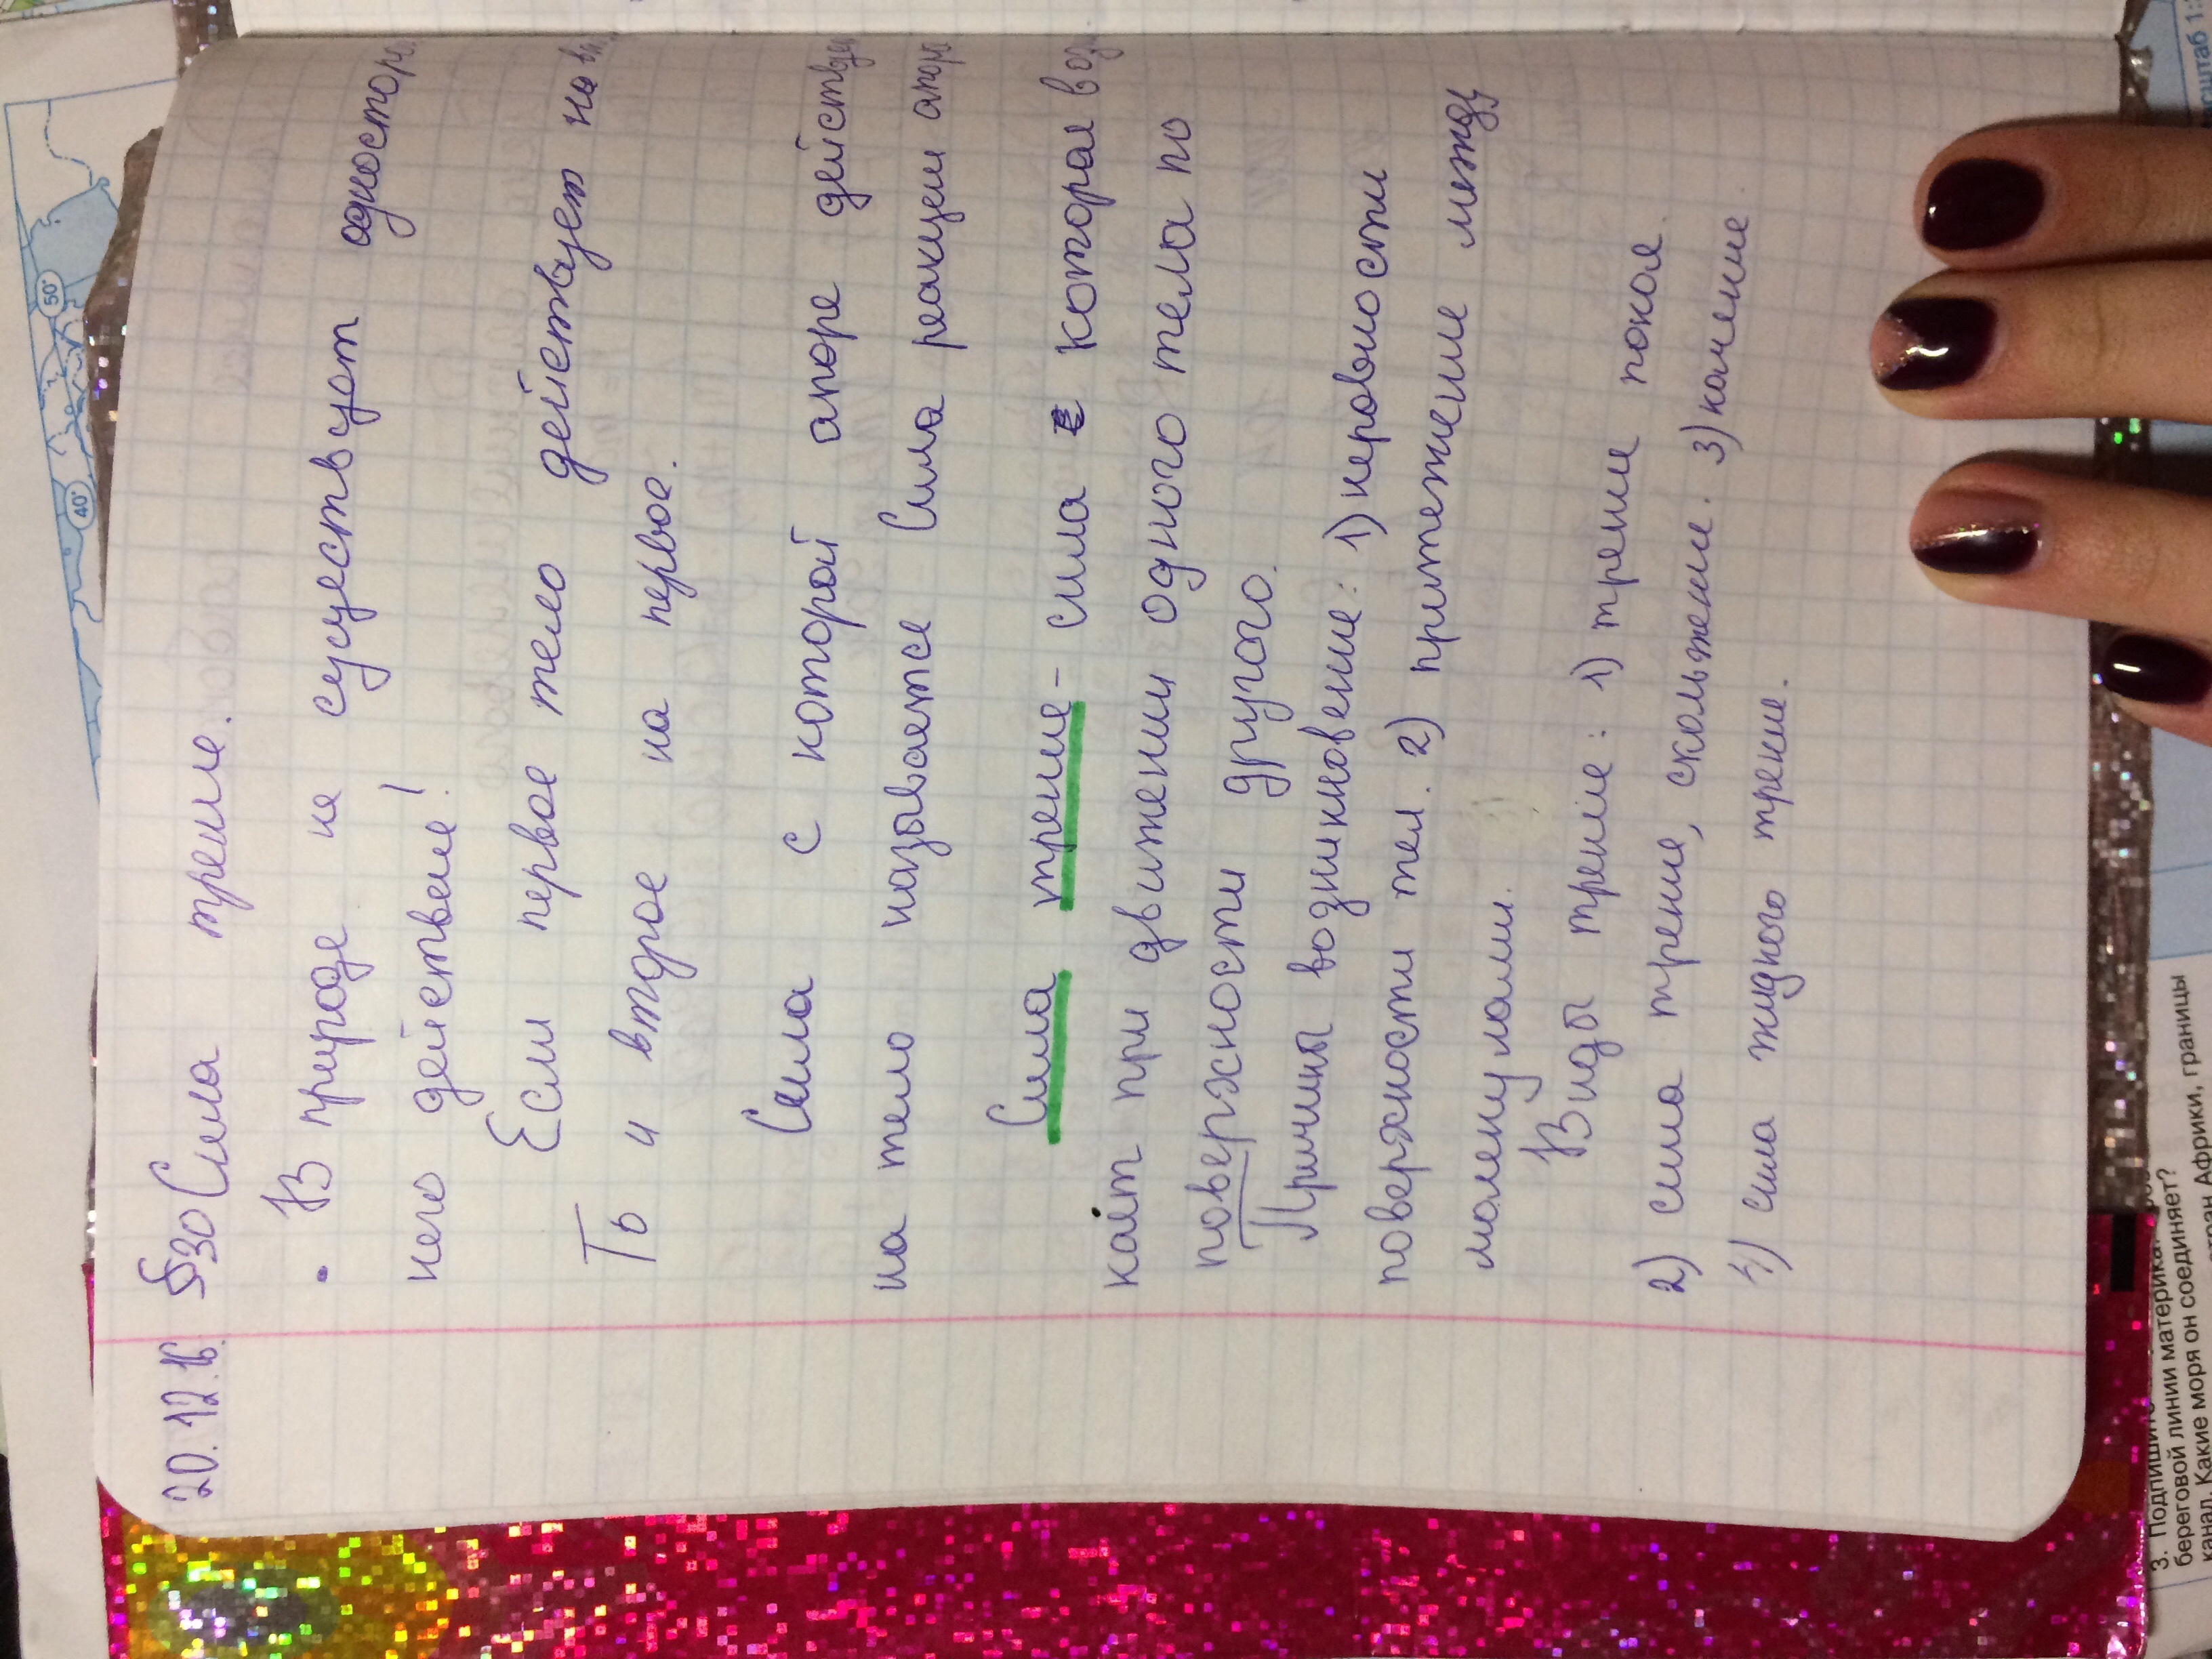 20.12.16. §30 Сила трение.
• В природе не сусуествует односторон
него действеие!
Если первое тело действует на
То и второе на первое.
Сила с которой апоре действуе
на тело называется Сила реакцеи апоры
Сила трение - сила которая воз
кает при движении одного тела по
поверхности другого.
Причины возникновение: 1) неровности
поверхности тел. 2) притежение между
молекулами.
Виды трение: 1) трение покоя.
2) сила трение, скольжении. 3) качение
4) сила жидкого трение.
40°
50°
береговой линии материка
3. Подпишите
канал. Какие моря он соединяет?
стран Африки, границы